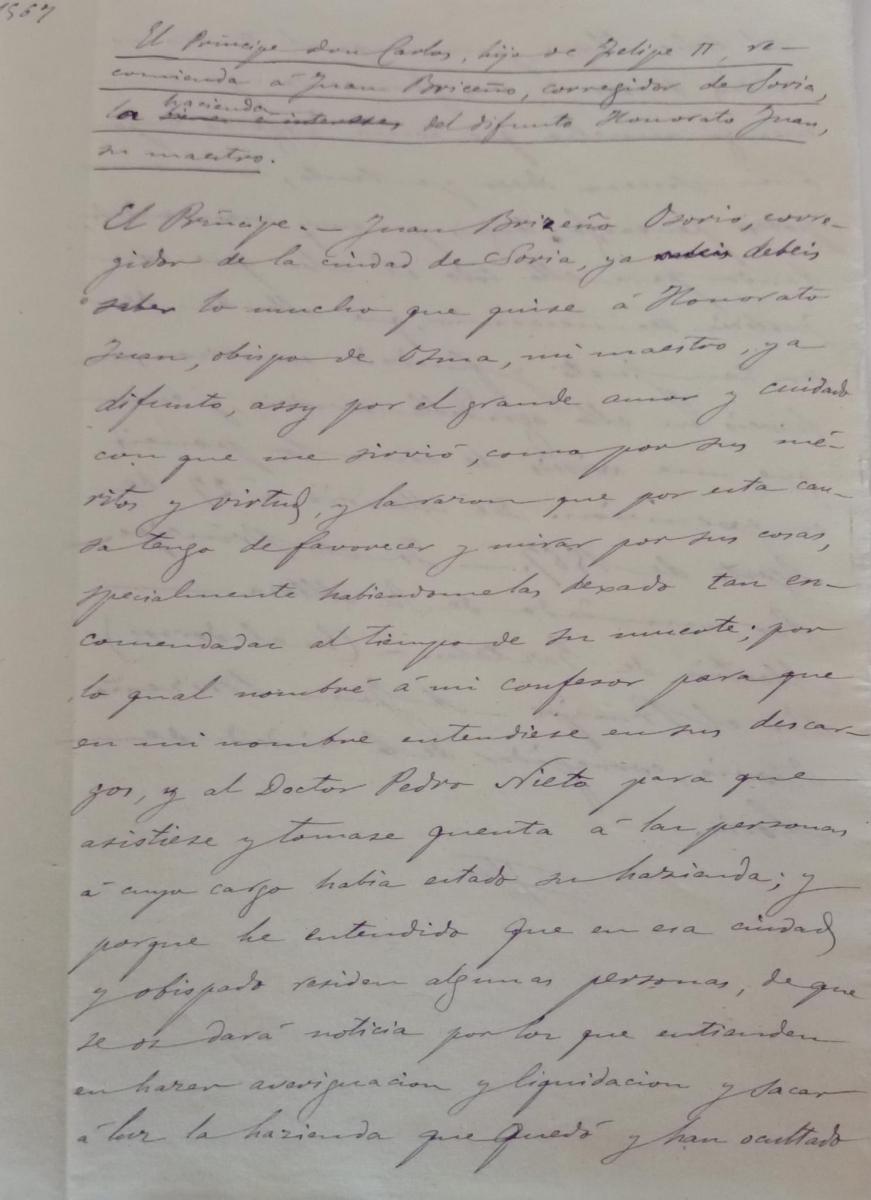 1567
El Príncipe don Carlos, hijo de Felipe II, re-
comienda á Juan Briceño, corregidor de Soria,
hacienda
la bienes e intereses del difunto Honorato Juan,
su maestro.
El Príncipe. — Juan Brizeño Osorio, corre-
gidor de la ciudad de Soria, ya debeis
saber lo mucho que quise á Honorato
Juan, obispo de Osma, mi maestro, ya
difunto, assy por el grande amor y cuidado
con que me sirvió, como por sus mé-
ritos y virtud, y la razon que por esta cau-
sa tengo de favorecer y mirar por sus cosas,
specialmente habiendomelas dexado tan en-
comendadas al tiempo de su muerte; por
lo qual nombré á mi confesor para que
en mi nombre entendiese en sus descar-
gos, y al Doctor Pedro Nieto para que
asistiese y tomase quenta á las personas
á cuyo cargo habia estado su hazienda; y
porque he entendido que en esa ciudad
y obispado residen algunas personas, de que
se os dará noticia por los que entienden
en hazer averiguacion y liquidacion y sacar
á luz la hazienda que quedó y han ocultado